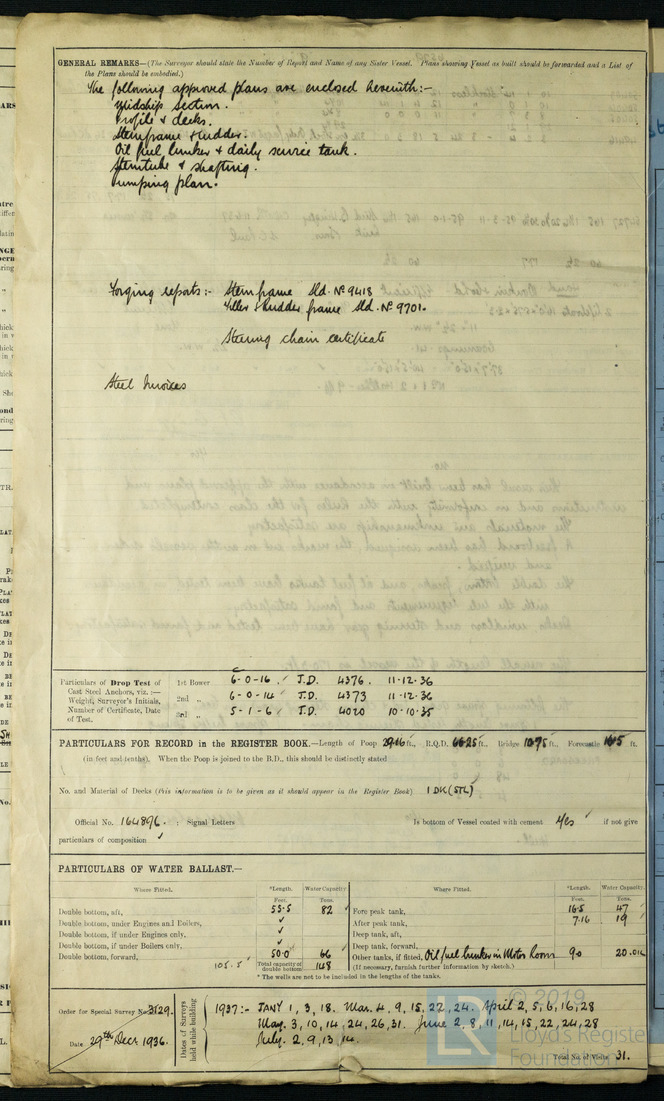 GENERAL REMARKS—(The Surveyor should state the Number of Report and Name of any Sister Vessel. Plans showing Vessel as built should be forwarded and a List of
the Plans should be embodied.)
The following approved plans are enclosed herewith:-
Midship Section.
Profile & decks.
Sternframe & rudder.
Oil fuel bunker & daily service tank.
Sterntube & shafting.
Pumping plan.
Forging reports:- Stern frame Sld. No 9418
Tiller & rudder frame Sld. No 9701.
Steering chain certificate
Steel Invoices
Particulars of Drop Test of
Cast Steel Anchors, viz.:—
Weight, Surveyor's Initials,
Number of Certificate, Date
of Test.
1st Bower 6-0-16 J.D. 4376. 11-12-36
2nd „ 6-0-14 J.D. 4373 11-12-36
3rd „ 5-1-6 J.D. 4020 10-10-35
PARTICULARS FOR RECORD in the REGISTER BOOK.—Length of Poop 29.16 ft., R.Q.D. 66.25 ft., Bridge 10.75 ft., Forecastle 16.5 ft.
(in feet and tenths). When the Poop is joined to the B.D., this should be distinctly stated
No. and Material of Decks (this information is to be given as it should appear in the Register Book) 1 DK (STL)
Official No. 164896. ; Signal Letters Is bottom of Vessel coated with cement Yes if not give
particulars of composition
PARTICULARS OF WATER BALLAST.—
Where Fitted. *Length. Water Capacity. Where Fitted. *Length. Water Capacity.
Feet. Tons. Feet. Tons.
Double bottom, aft, 53.5 82 Fore peak tank, 16.5 47
Double bottom, under Engines and Boilers, After peak tank, 7.16 19
Double bottom, if under Engines only, Deep tank, aft,
Double bottom, if under Boilers only, Deep tank, forward,
Double bottom, forward, 50.0 66 Other tanks, if fitted, Oil fuel bunker in Motor Room 9.0 20.OIL
105.5 Total capacity of double bottom 148 (If necessary, furnish further information by sketch.)
* The wells are not to be included in the lengths of the tanks.
Order for Special Survey No. 3129.
Date 29th Decr 1936.
Dates of Surveys
held while building
1937:- JANY 1, 3, 18. Mar. 4, 9, 15, 22, 24. April 2, 5, 6, 16, 28
May. 3, 10, 14, 24, 26, 31. June 2, 8, 11, 14, 15, 22, 24, 28
July. 2, 9, 13, 14.
Total No. of Visits 31.
© 2019
LR
Lloyd's Register
Foundation